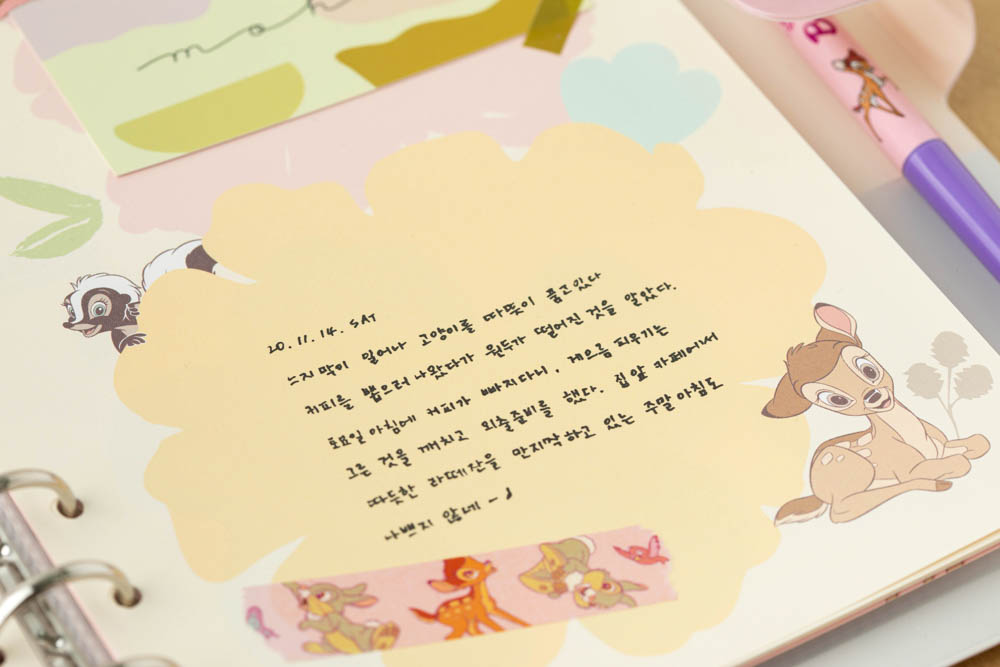 20. 11. 14. SAT
느지막이 일어나 고양이를 따뜻이 품고있다
커피를 뽑으러 나왔다가 원두가 떨어진 것을 알았다.
토요일 아침에 커피가 빠지다니, 게으름 피우기는
그른 것을 깨치고 외출준비를 했다. 집 앞 카페에서
따듯한 라떼잔을 만지작하고 있는 주말아침도
나쁘지 않네 -♪